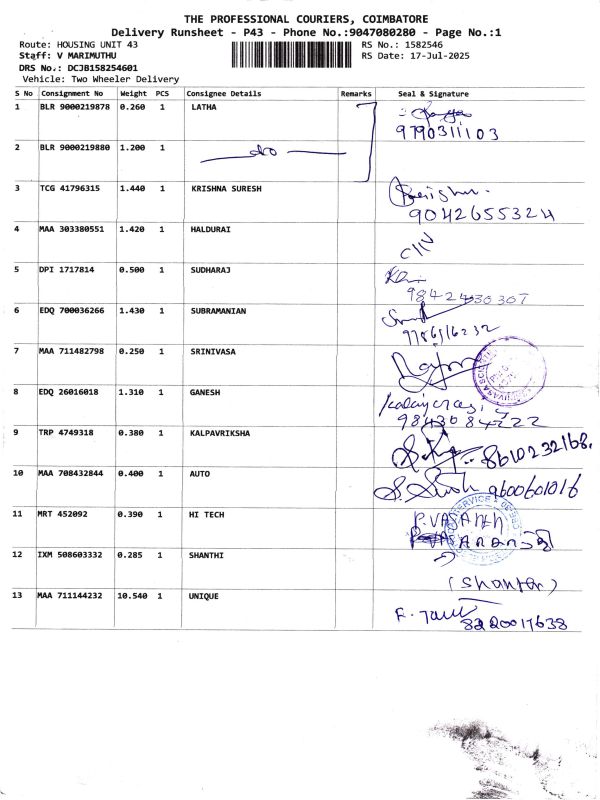 THE PROFESSIONAL COURIERS, COIMBATORE
Delivery Runsheet - P43 - Phone No.:9047080280 - Page No.:1
Route: HOUSING UNIT 43 RS No.: 1582546
Staff: V MARIMUTHU RS Date: 17-Jul-2025
DRS No.: DCJB158254601
Vehicle: Two Wheeler Delivery
S No Consignment No Weight PCS Consignee Details Remarks Seal & Signature
1 BLR 9000219878 0.260 1 LATHA
9790311103
2 BLR 9000219880 1.200 1 do
3 TCG 41796315 1.440 1 KRISHNA SURESH
9042655324
4 MAA 303380551 1.420 1 HALDURAI
5 DPI 1717814 0.500 1 SUDHARAJ
9842430307
6 EDQ 700036266 1.430 1 SUBRAMANIAN
7 MAA 711482798 0.250 1 SRINIVASA
8 EDQ 26016018 1.310 1 GANESH
9843084222
9 TRP 4749318 0.380 1 KALPAVRIKSHA
8610232168.
10 MAA 708432844 0.400 1 AUTO
9600601016
11 MRT 452092 0.390 1 HI TECH
12 IXM 508603332 0.285 1 SHANTHI
13 MAA 711144232 10.540 1 UNIQUE
8220017638